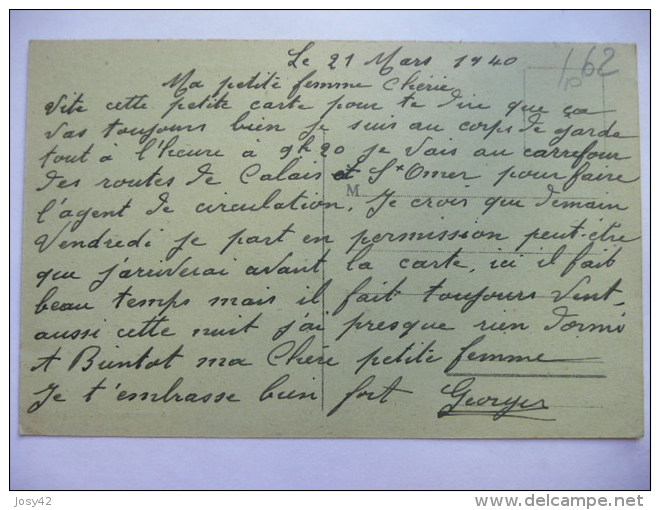 Le 21 Mars 1940
62
10
Ma petite femme Chérie
Vite cette petite carte pour te dire que ça
vas toujours bien je suis au corps de garde
tout à l'heure à 9h20 je vais au carrefour
des routes de Calais et St Omer pour faire
M
l'agent de circulation. Je crois que demain
Vendredi je part en permission peut-être
que j'arriverai avant la carte, ici il fait
beau temps mais il fait toujours vent,
aussi cette nuit j'ai presque rien dormi
A Bientot ma Chére petite femme
Je t'embrasse bien fort Georges
Josy42
www.delcampe.net